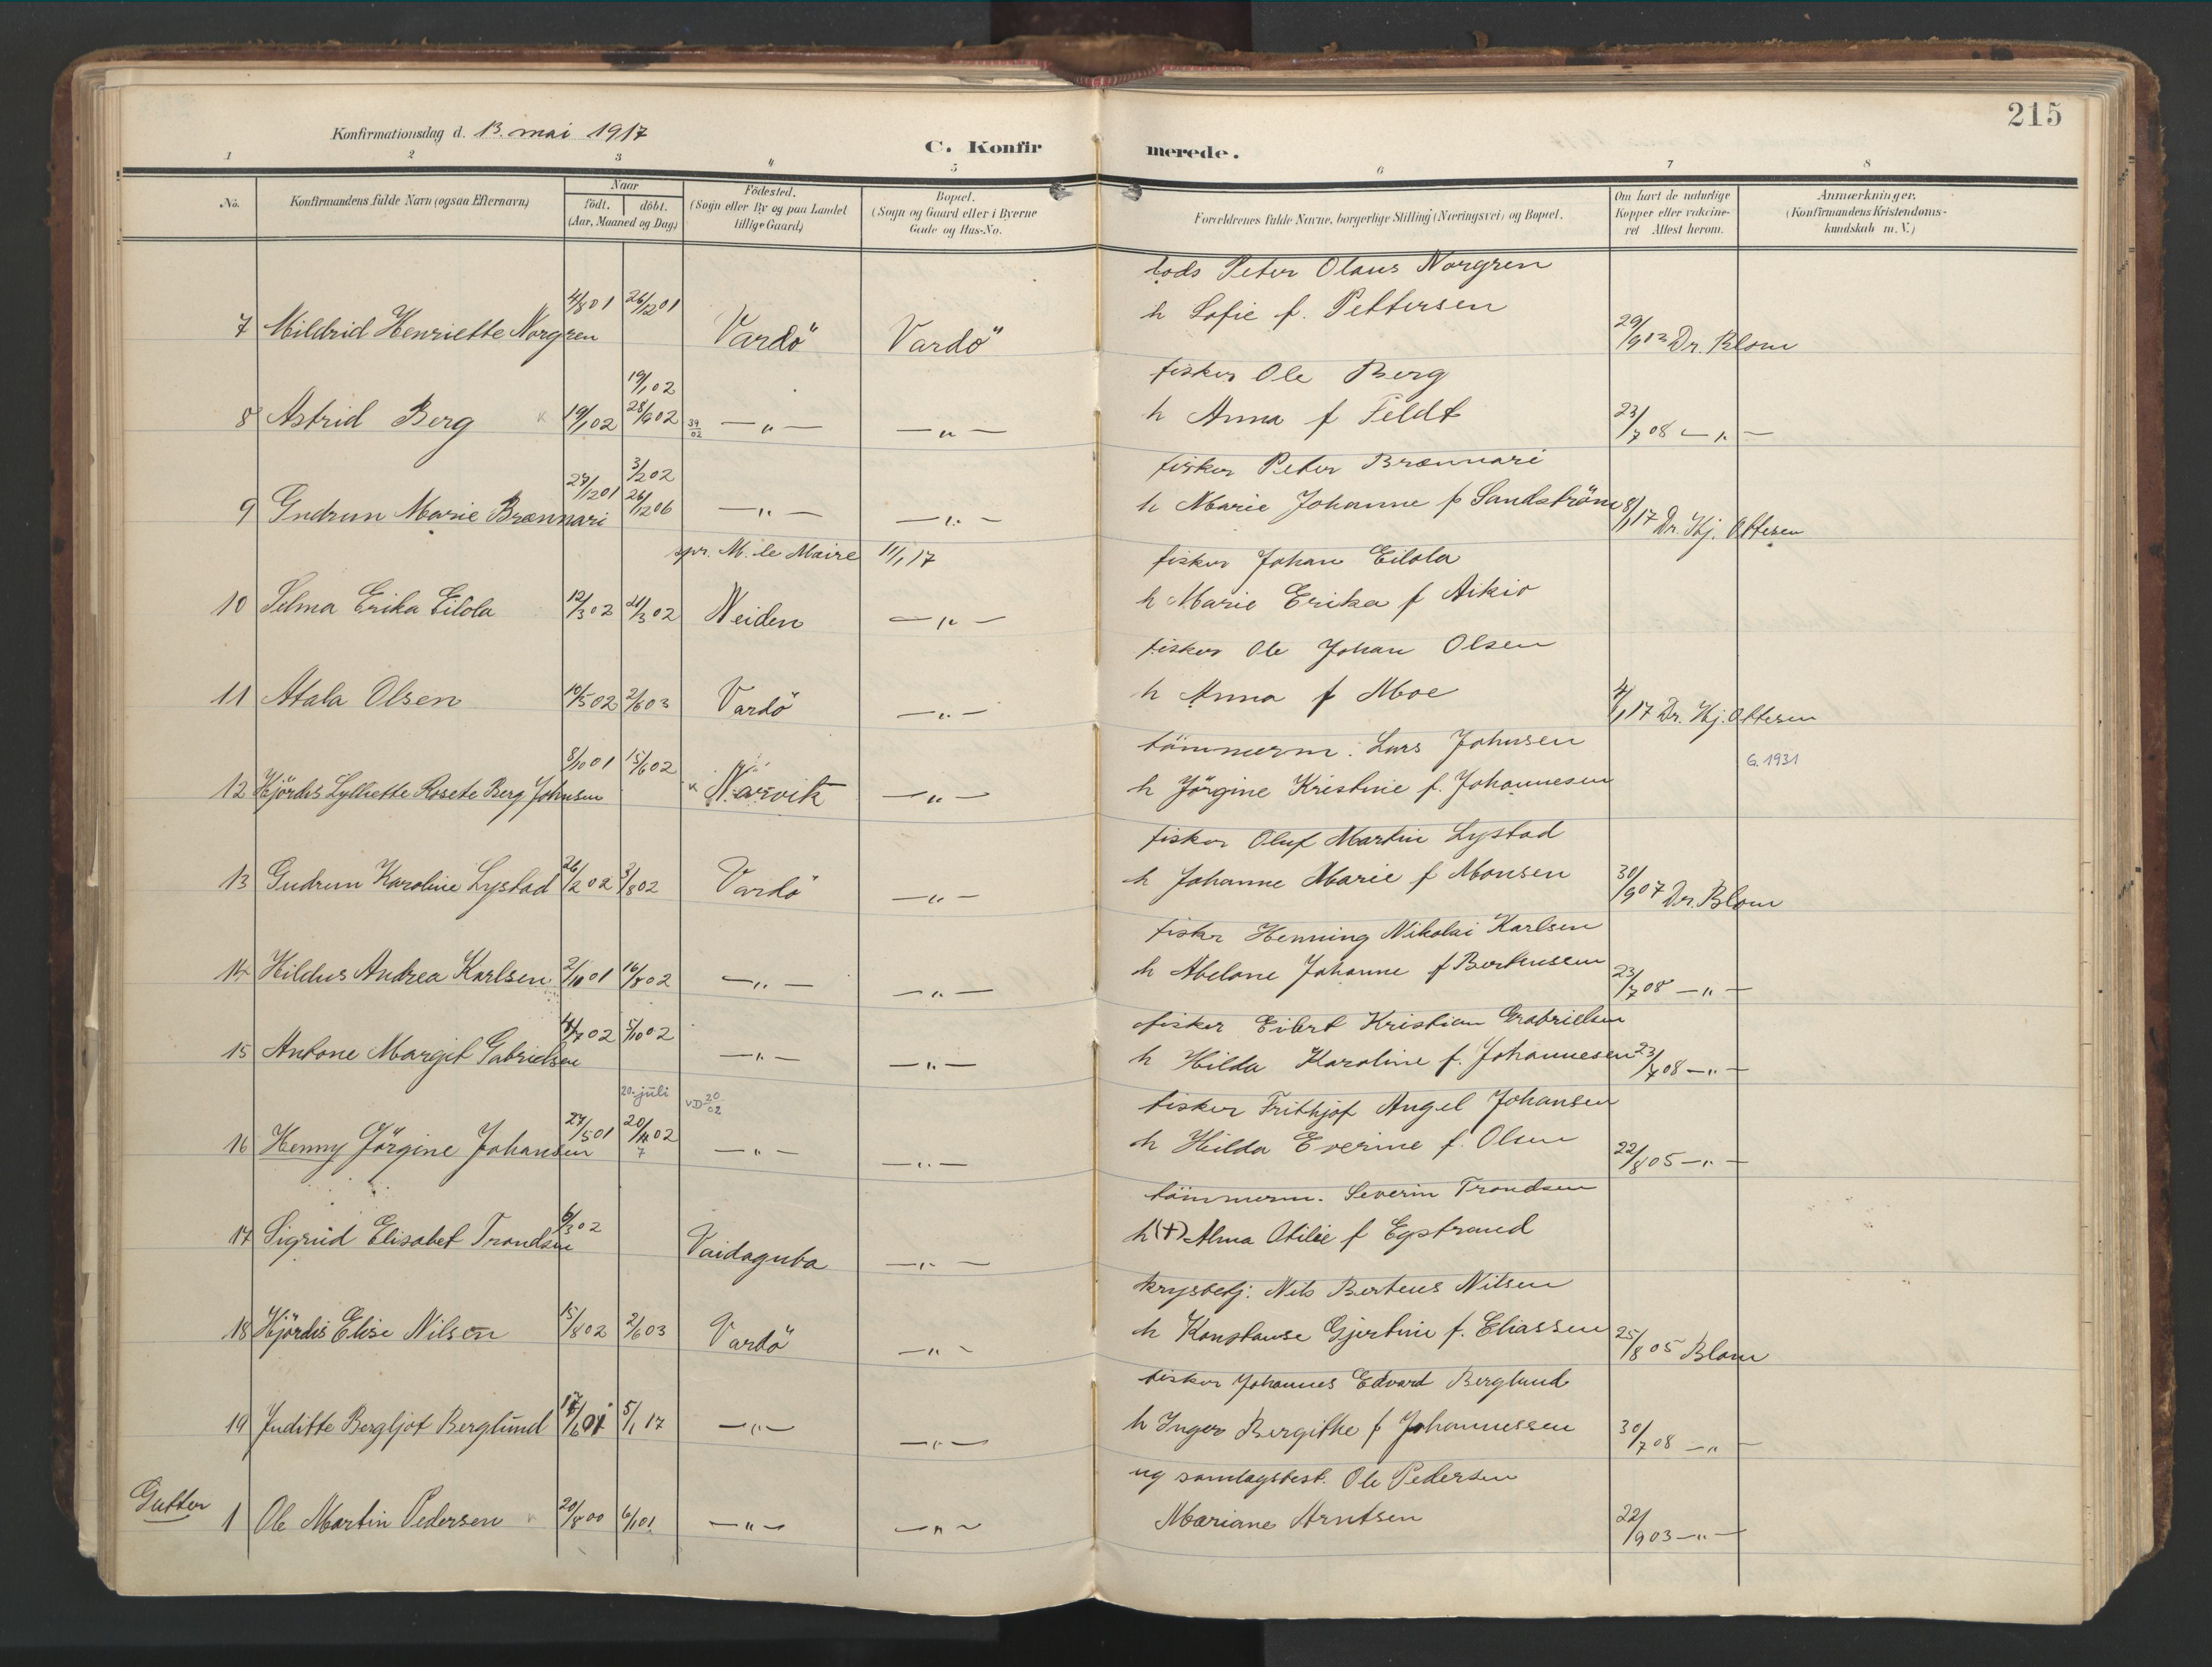 215
Konfirmationsdag d. 13. mai 1917
C. Konfirmerede.
1 2 3 4 5 6 7 8
No.
Konfirmandens fulde Navn (ogsaa Efternavn)
Naar
födt. döbt.
(Aar, Maaned og Dag)
Födested.
(Sogn eller By og paa Landet
tillige Gaard)
Bopæl.
(Sogn og Gaard eller i Byerne
Gade og Hus-No.
Forældrenes fulde Navne, borgerlige Stilling (Næringsvei) og Bopæl.
Om havt de naturlige
Kopper eller vakcine-
ret Attest herom.
Anmærkninger.
(Konfirmandens Kristendoms-
kundskab m. V.)
lods Peter Olaus Norgren
7 Mildrid Henriette Norgren 4/8 01 26/12 01 Vardö Vardö h Sofie f. Pettersen 29/9 03 Dr. Blom
19/1 02
fisker Ole Berg
8 Astrid Berg 19/1 02 28/9 02 39/02 — " — — " — h Anna f Feldt 23/7 08 — " —
3/2 02
fisker Peter Brænnari
9 Gudrun Marie Brænnari 27/12 01 26/12 06 — " — — " — h Marie Johanne f Sandström 8/1 17 Dr. Hj. Ottesen
spr. M. le Maire 11/1 17
fisker Johan Eilola
10 Selma Erika Eilola 12/3 02 21/3 02 Neiden — " — h Marie Erika f Aikio
fisker Ole Johan Olsen
11 Atala Olsen 10/5 02 2/6 03 Vardö — " — h Anna f Moe 4/1 17 Dr. Hj. Ottesen
tömmerm. Lars Johnsen G. 1931
12 Hjördis Lylliette Rosete Berg Johnsen 8/10 01 15/6 02 Narvik — " — h Jörgine Kristine f. Johannesen
fisker Oluf Martin Lystad
13 Gudrun Karoline Lystad 26/2 02 3/8 02 Vardö — " — h Johanne Marie f Monsen 30/9 07 Dr. Blom
fisker Henning Nikolai Karlsen
14 Hildus Andrea Karlsen 2/10 01 16/8 02 — " — — " — h Abelone Johanne f Berteussen 23/7 08 — " —
fisker Eilert Kristian Grabrielsen
15 Antone Margit Gabrielsen 4/7 02 5/10 02 — " — — " — h Hilda Karoline f. Johannesen 23/7 08 — " —
20. juli VD 20/02
fisker Frithjof Angel Johansen
16 Henny Jörgine Johansen 27/5 01 20/11 02 7 — " — — " — h Hilda Everine f. Olsen 22/8 05 — " —
tömmerm. Severin Trondsen
17 Sigrid Elisabet Trondsen 6/3 02 Vaidaguba — " — h (+) Alma Otilie f Eystrand
krysbetj. Nils Berteus Nilsen
18 Hjördis Elise Nilsen 15/8 02 2/6 03 Vardö — " — h Konstanse Gjertine f. Eliassen 25/8 05 Blom
fisker Johannes Edvard Berglund
19 Juditte Bergljot Berglund 17/6 01 5/1 17 — " — — " — h Inger Bergithe f Johannessen 30/7 08 — " —
ug samlagsbest. Ole Pedersen
Gutter
1 Ole Martin Pedersen 20/8 00 6/1 01 — " — — " — Mariane Arntsen 22/9 03 — " —